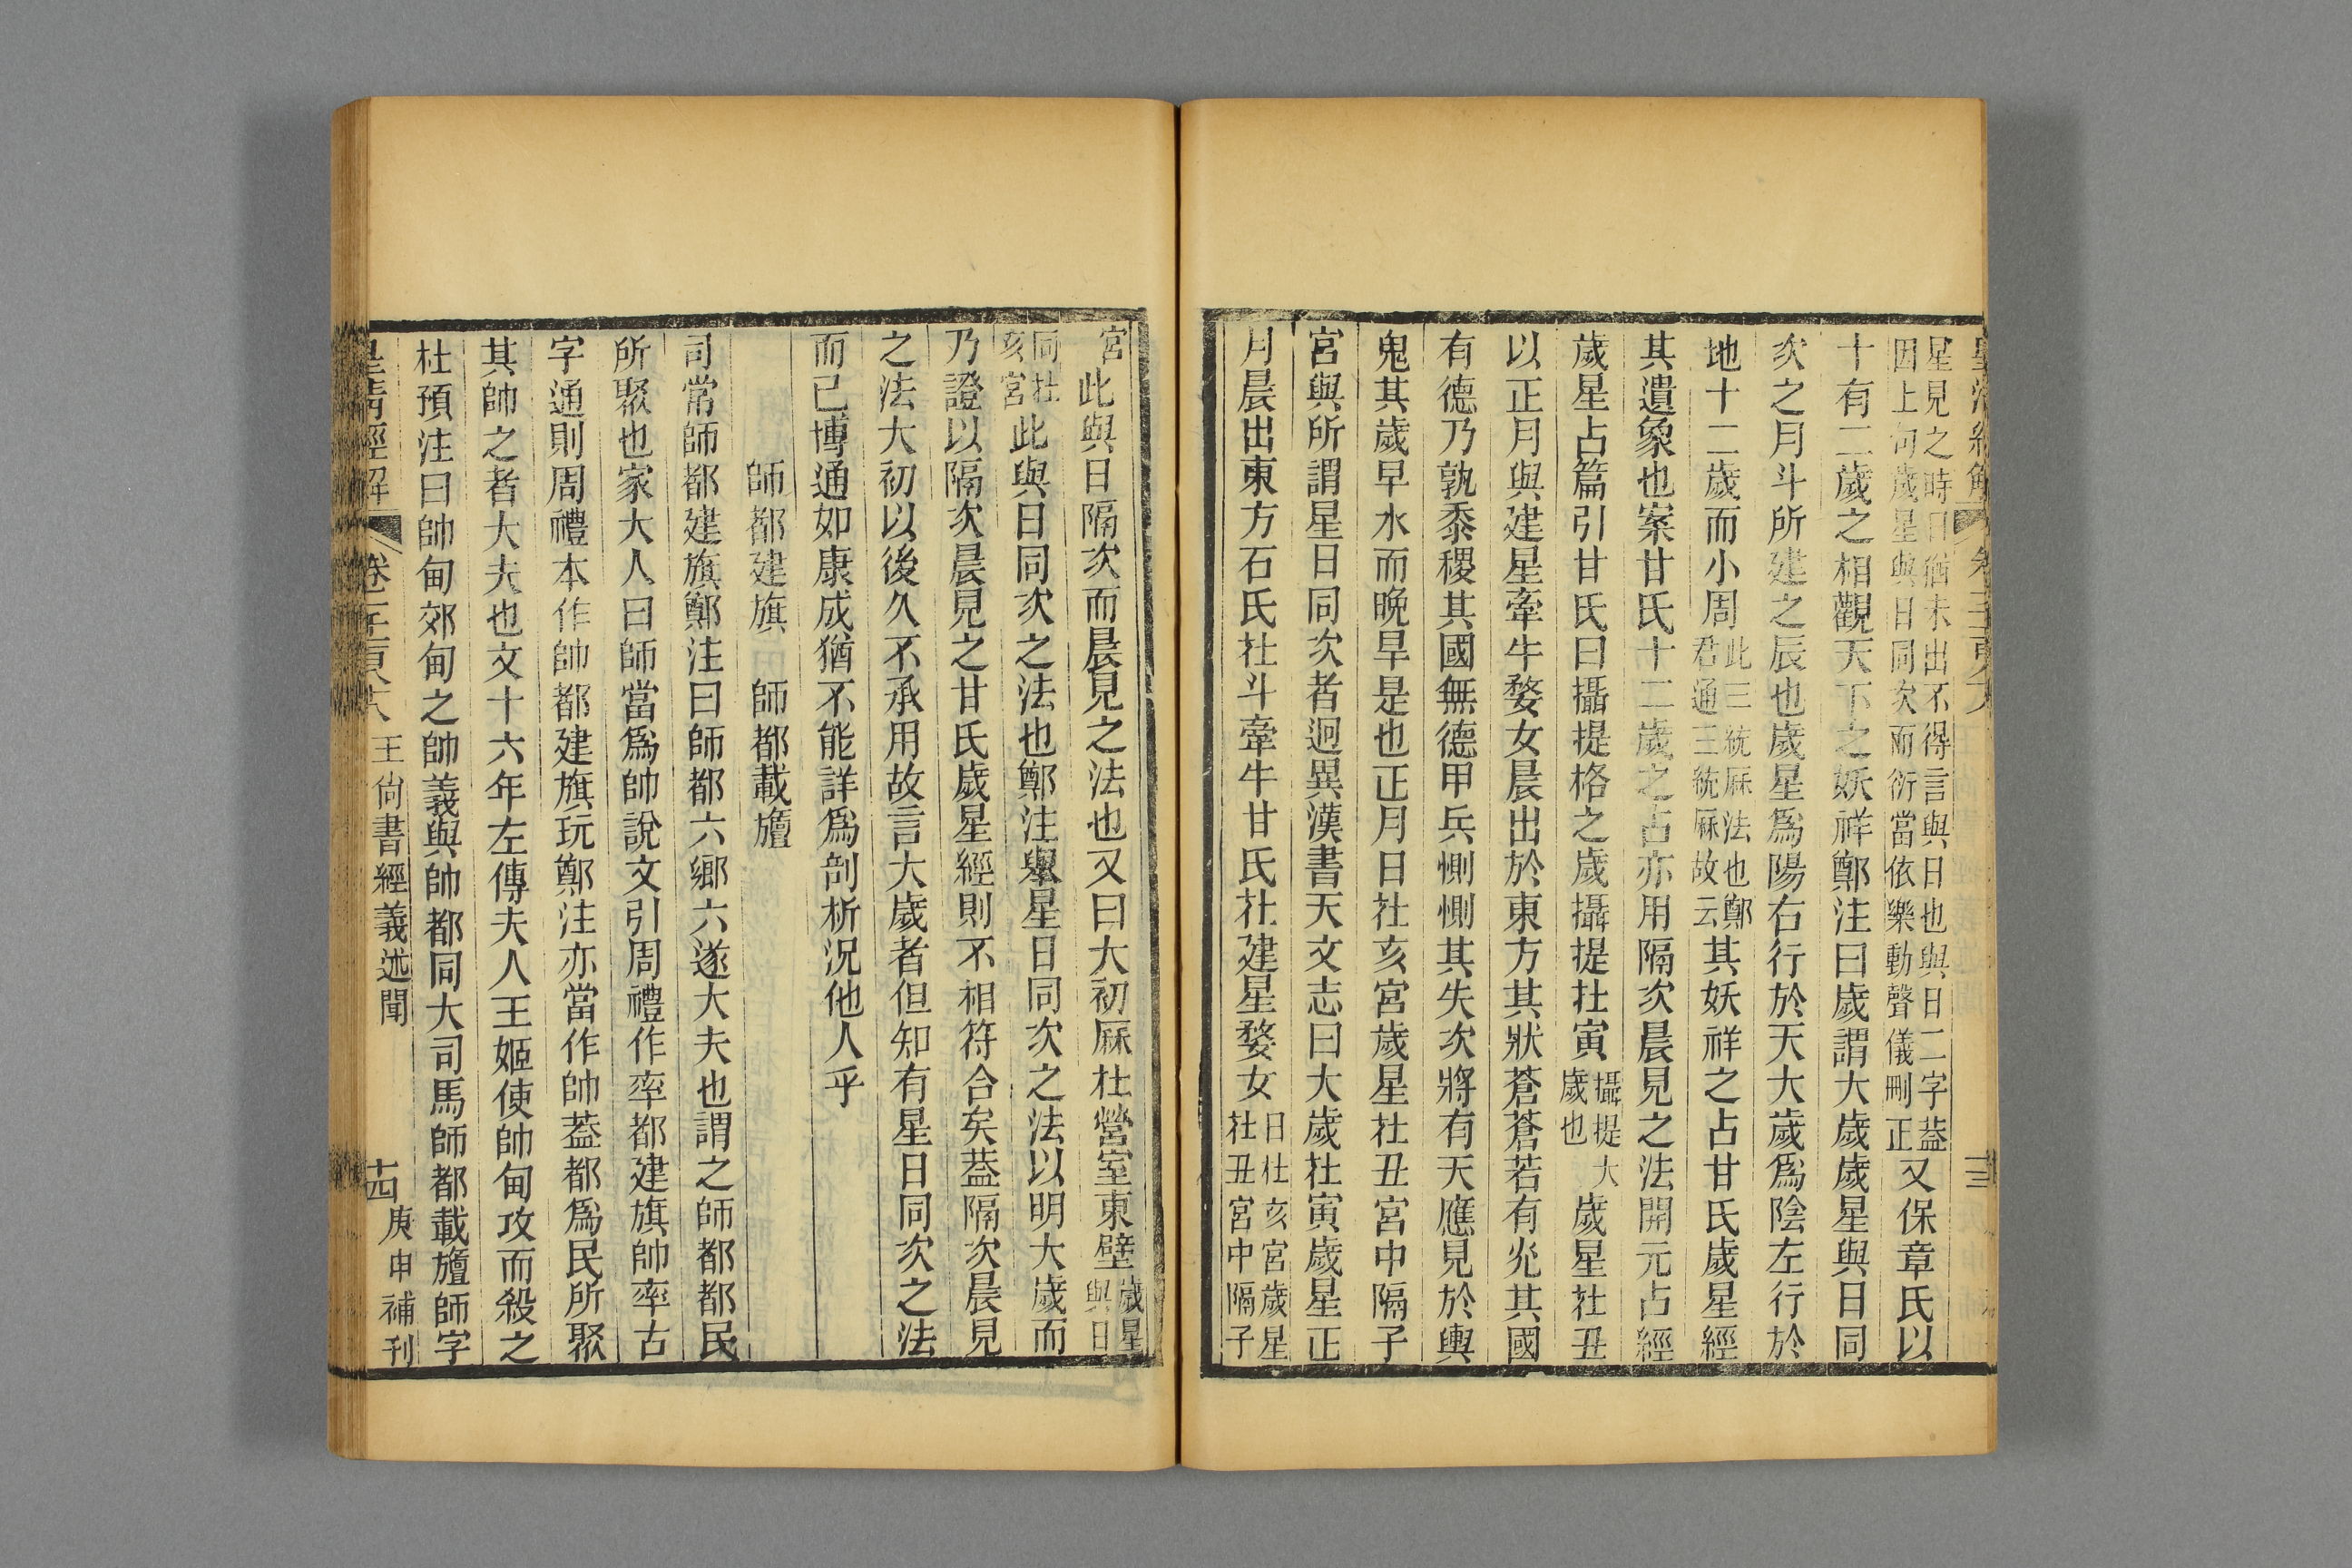 星見之時日猶未出不得言與日也與日二字蓋
因上句歲星與日同次而衍當依樂動聲儀刪正
又保章氏以
十有二歲之相觀天下之妖祥鄭注曰歲謂大歲歲星與日同
次之月斗所建之辰也歲星爲陽右行於天大歲爲陰左行於
地十二歲而小周
此三統厤法也鄭
君通三統厤故云
其妖祥之占甘氏歲星經
其遺象也案甘氏十二歲之占亦用隔次晨見之法開元占經
歲星占篇引甘氏曰攝提格之歲攝提在寅
攝提大
歲也
歲星在丑
以正月與建星牽牛婺女晨出於東方其狀蒼蒼若有光其國
有德乃孰黍稷其國無德甲兵惻惻其失次將有天應見於輿
鬼其歲早水而晚旱是也正月日在亥宮歲星在丑宮中隔子
宮與所謂星日同次者迥異漢書天文志曰大歲在寅歲星正
月晨出東方石氏在斗牽牛甘氏在建星婺女
日在亥宮歲星
在丑宮中隔子
宮
此與日隔次而晨見之法也又曰大初厤在營室東壁
歲星
與日
同在
亥宮
此與日同次之法也鄭注舉星日同次之法以明大歲而
乃證以隔次晨見之甘氏歲星經則不相符合矣蓋隔次晨見
之法大初以後久不承用故言大歲者但知有星日同次之法
而已博通如康成猶不能詳爲剖析況他人乎
師都建旗　師都載旜
司常師都建旗鄭注曰師都六鄉六遂大夫也謂之師都都民
所聚也家大人曰師當爲帥說文引周禮作率都建旗帥率古
字通則周禮本作帥都建旗玩鄭注亦當作帥蓋都爲民所聚
其帥之者大夫也文十六年左傳夫人王姬使帥甸攻而殺之
杜預注曰帥甸郊甸之帥義與帥都同大司馬師都載旜師字
皇清經解
卷一千一百八十八
王尚書經義述聞
十四
庚申補刊